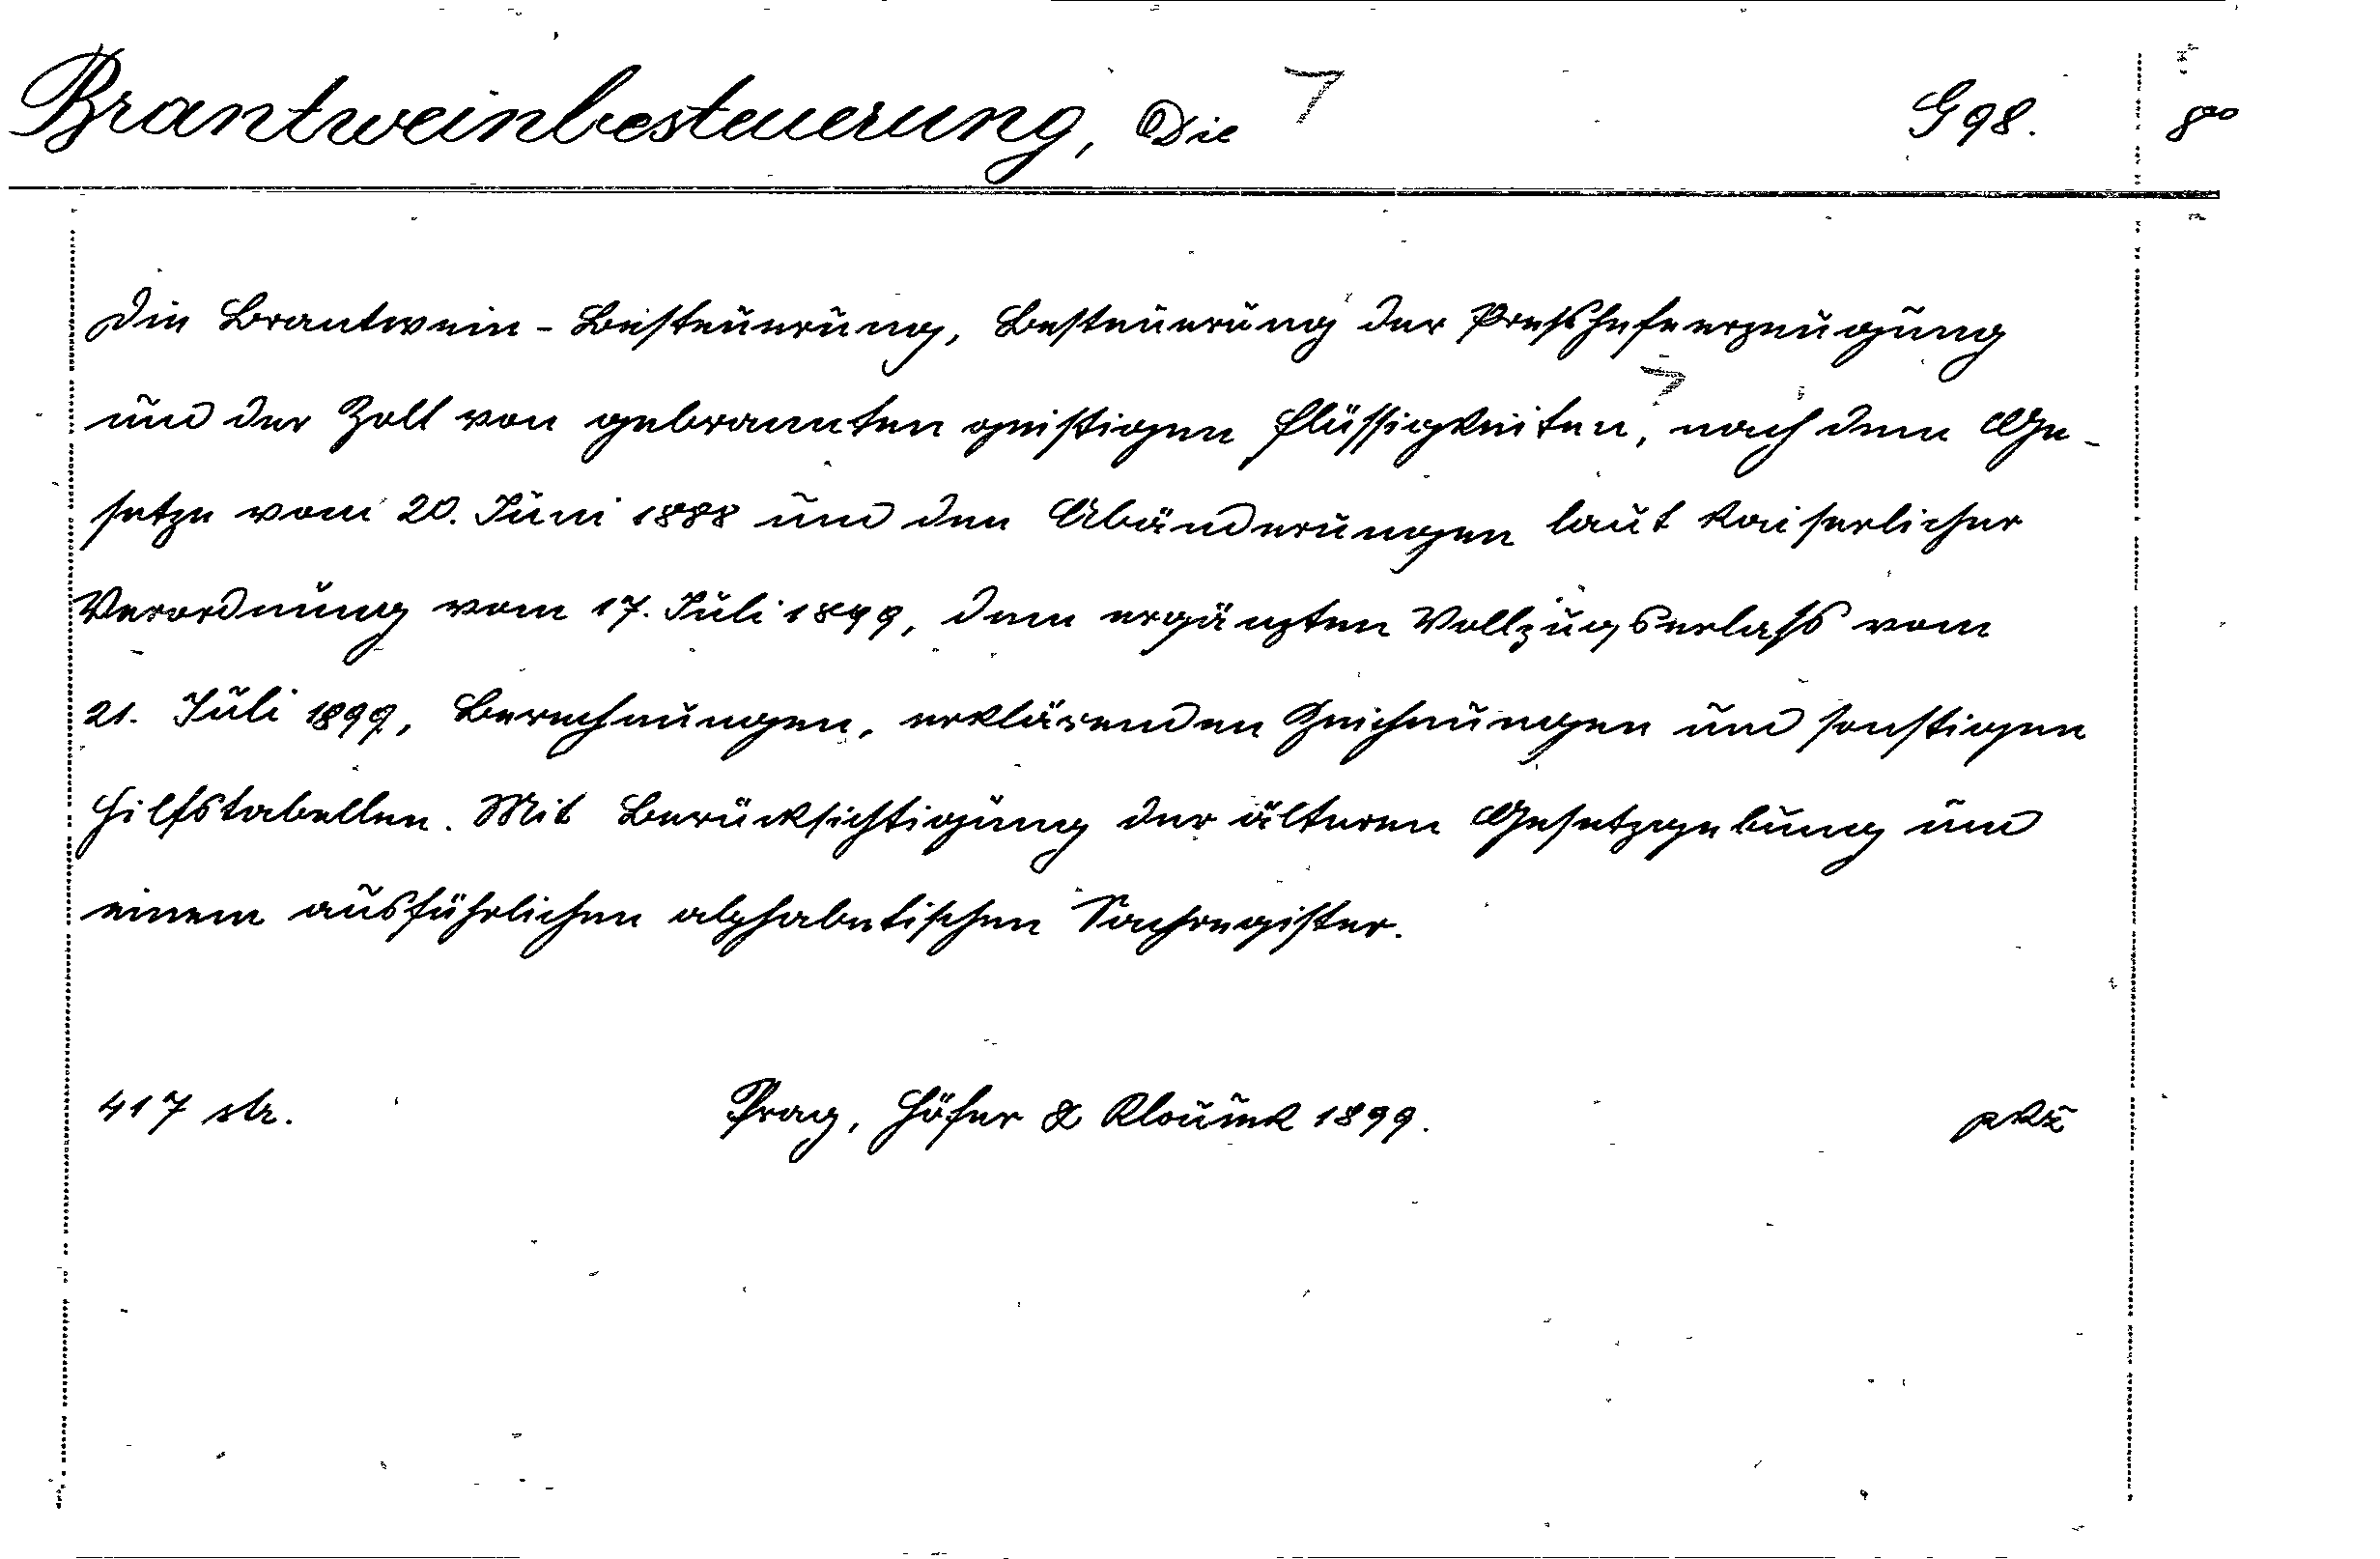 Brantweinbesteuerung, Die G 98. 8°
Die Brantwein-Besteuerung, Besteuerung der Preßhefeerzeugung
und der Zoll von gebrannten geistigen Flüssigkeiten, nach dem Ge-
setze vom 20. Juni 1888 und den Abänderungen laut kaiserlicher
Verordnung vom 17. Juli 1899, dem ergänzten Vollzugserlaß vom
21. Juli 1899, Berechnungen, erklärenden Zeichnungen und sonstigen
Hilfstabellen. Mit Berücksichtigung der älteren Gesetzgebung und
einem ausführlichen alphabetischen Sachregister.
417 str. Prag, Höfer & Klouček 1899.